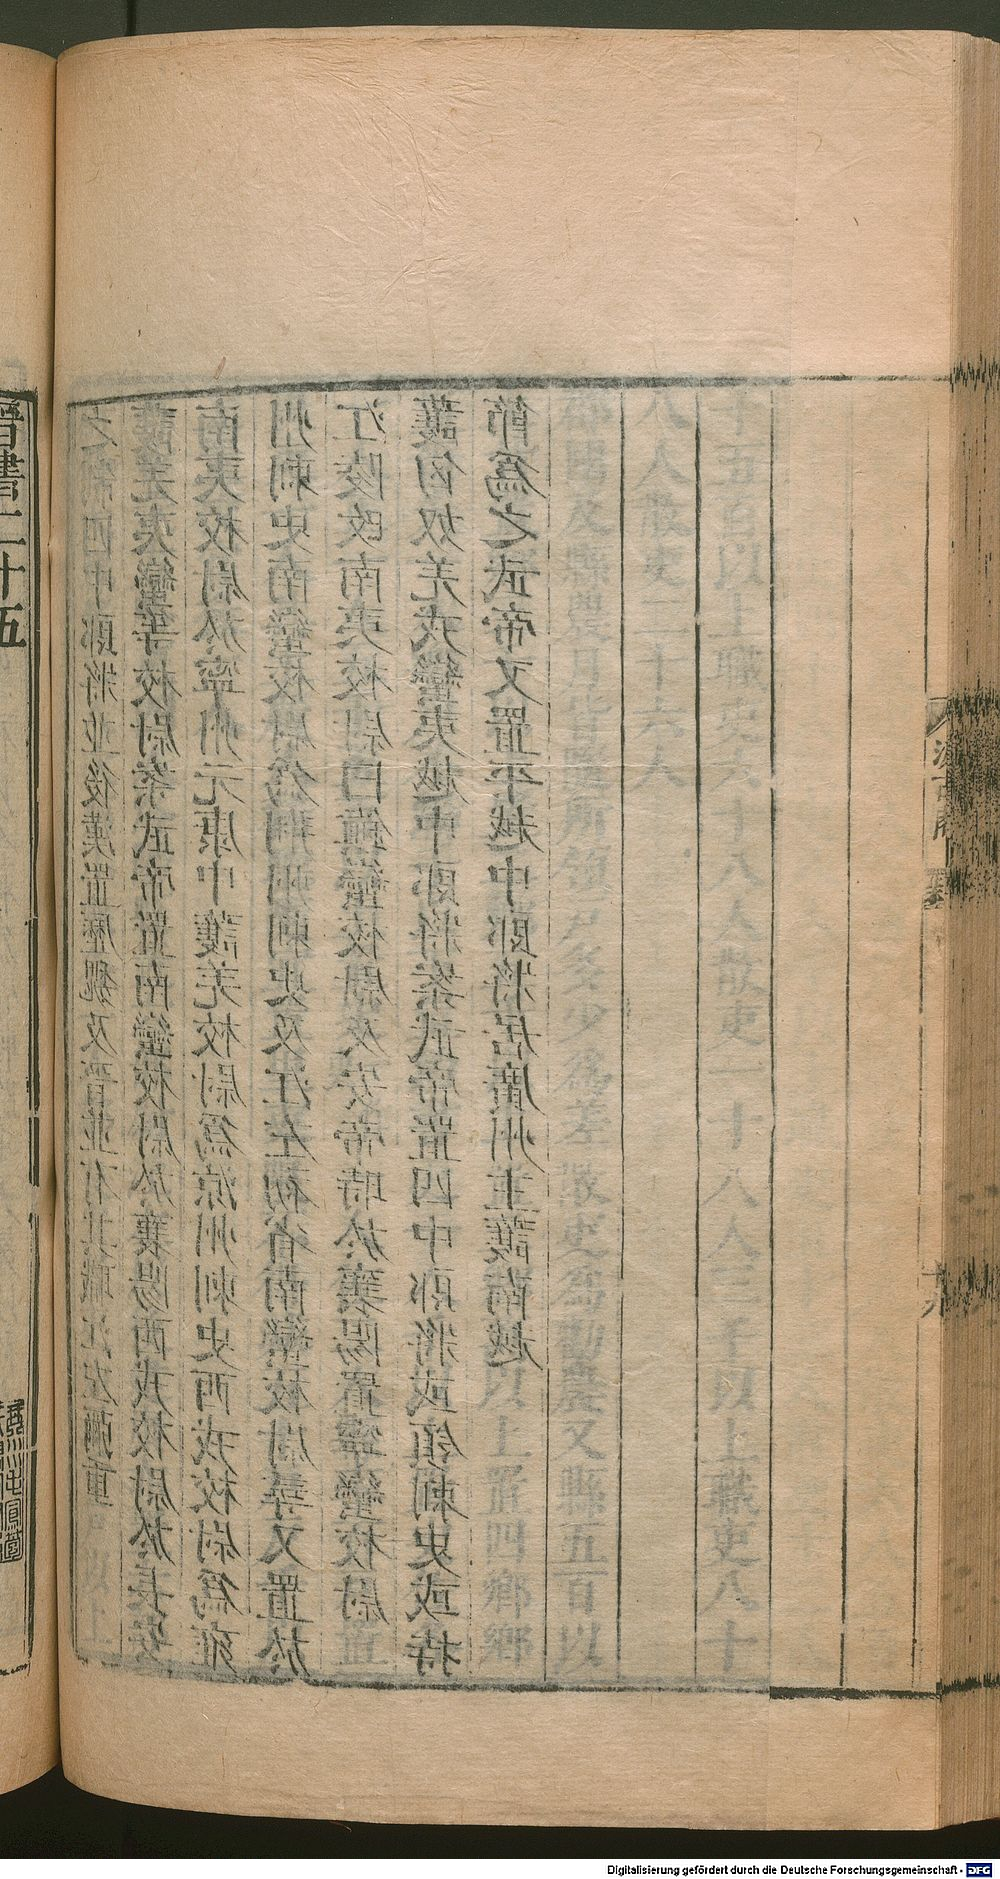 千五百以上職吏六十八人散吏一十八人三千以上職吏八十
八人散吏二十六人
郡國及縣農月皆隨所領戶多少爲差散吏爲勸農又縣五百以
以上置四鄉鄉
之制四中郎將並後漢置歷魏及晉並有其職江左彌重
護羌夷蠻等校尉案武帝置南蠻校尉於襄陽西戎校尉於長安
南夷校尉於寧州元康中護羌校尉爲涼州刺史西戎校尉爲雍
州刺史南蠻校尉爲荊州刺史及江左初省南蠻校尉尋又置於
江陵改南夷校尉曰鎮蠻校尉及安帝時於襄陽置寧蠻校尉
護匈奴羌戎蠻夷越中郎將案武帝置四中郎將或領刺史或持
節爲之武帝又置平越中郎將居廣州主護南越
汲古閣
十九
晉書二十五
Digitalisierung gefördert durch die Deutsche Forschungsgemeinschaft - DFG